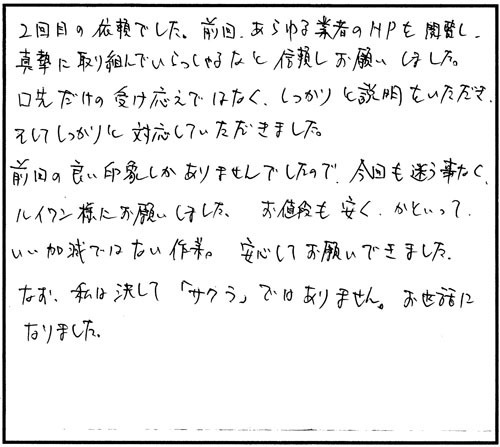 2回目の依頼でした。前回、あらゆる業者のHPを閲覧し、
真摯に取り組んでいらっしゃるなと信頼しお願いしました。
口先だけの受け応えではなく、しっかりと説明をいただき、
そしてしっかりと対応していただきました。
前回の良い印象しかありませんでしたので、今回も迷う事なく、
ルイワン様にお願いしました。 お値段も安く、かといって、
いい加減ではない作業。 安心してお願いできました。
なお、私は決して「サクラ」ではありません。お世話に
なりました。